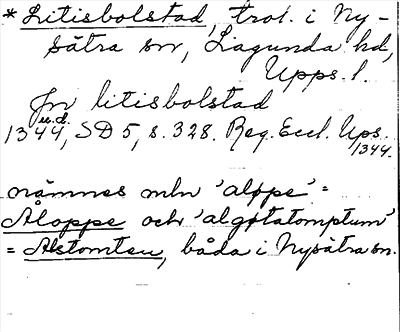 * Litisbolstad, trol. i Ny-
sätra sn, Lagunda hd,
Upps. l.
Jn litisbolstad
u.d.
1344, SD 5, s. 328. Reg. Eccl. Ups.
1344.
nämnes mln 'aloppe' =
Åloppe och 'algøtatomptum'
= Alstomten, båda i Nysätra sn.